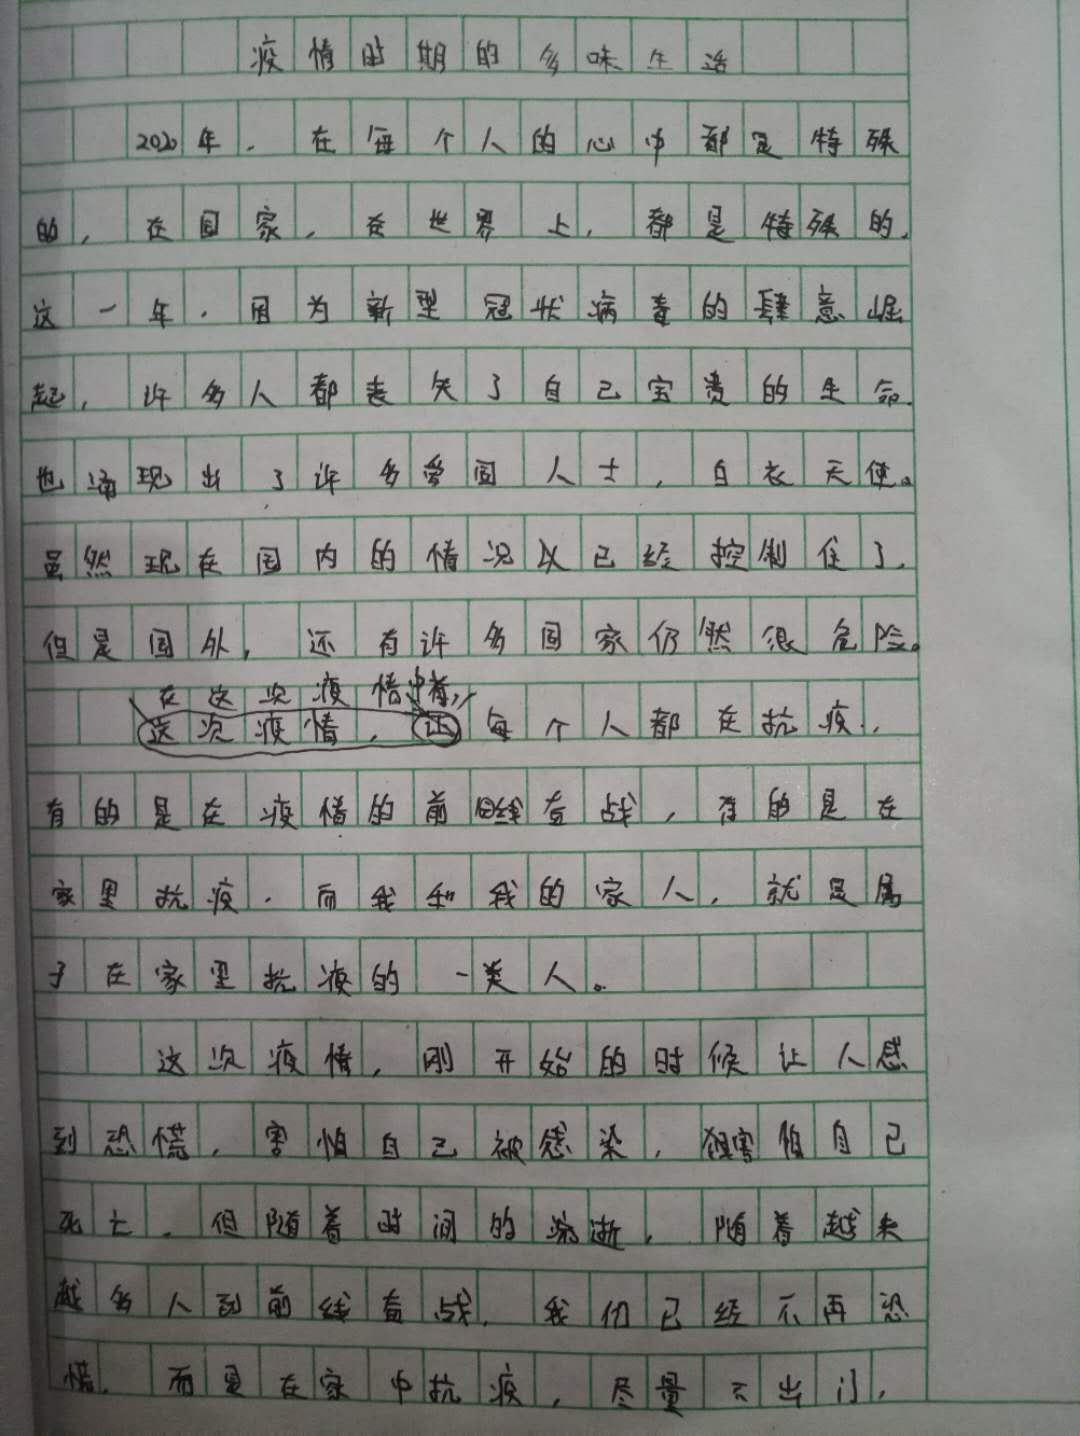 疫情时期的多味生活
2020年，在每个人的心中都是特殊
的，在国家，在世界上，都是特殊的，
这一年，因为新型冠状病毒的肆意崛
起，许多人都丧失了自己宝贵的生命，
也涌现出了许多爱国人士，白衣天使。
虽然现在国内的情况以已经控制住了，
但是国外，还有许多国家仍然很危险。
在这次疫情中
这次疫情，让每个人都在抗疫，
有的是在疫情的前线奋战，有的是在
家里抗疫，而我和我的家人，就是属
于在家里抗疫的一类人。
这次疫情，刚开始的时候让人感
到恐慌，害怕自己被感染，害怕自己
死亡，但随着时间的流逝，随着越来
越多人到前线奋战，我们已经不再恐
慌，而是在家中抗疫，尽量不出门，